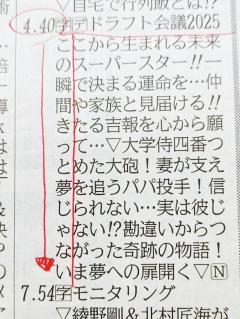 ▽自宅で行列飯とは!?
4.40 字デドラフト会議2025
ここから生まれる未来
のスーパースター!!一
瞬で決まる運命を…仲
間や家族と見届ける!!
きたる吉報を心から願
って…▽大学侍四番つ
とめた大砲!妻が支え
夢を追うパパ投手!信
じられない…実は彼じ
ゃない!?勘違いからつ
ながった奇跡の物語!
いま夢への扉開く▽N
7.54 字モニタリング
▽綾野剛&北村匠海が